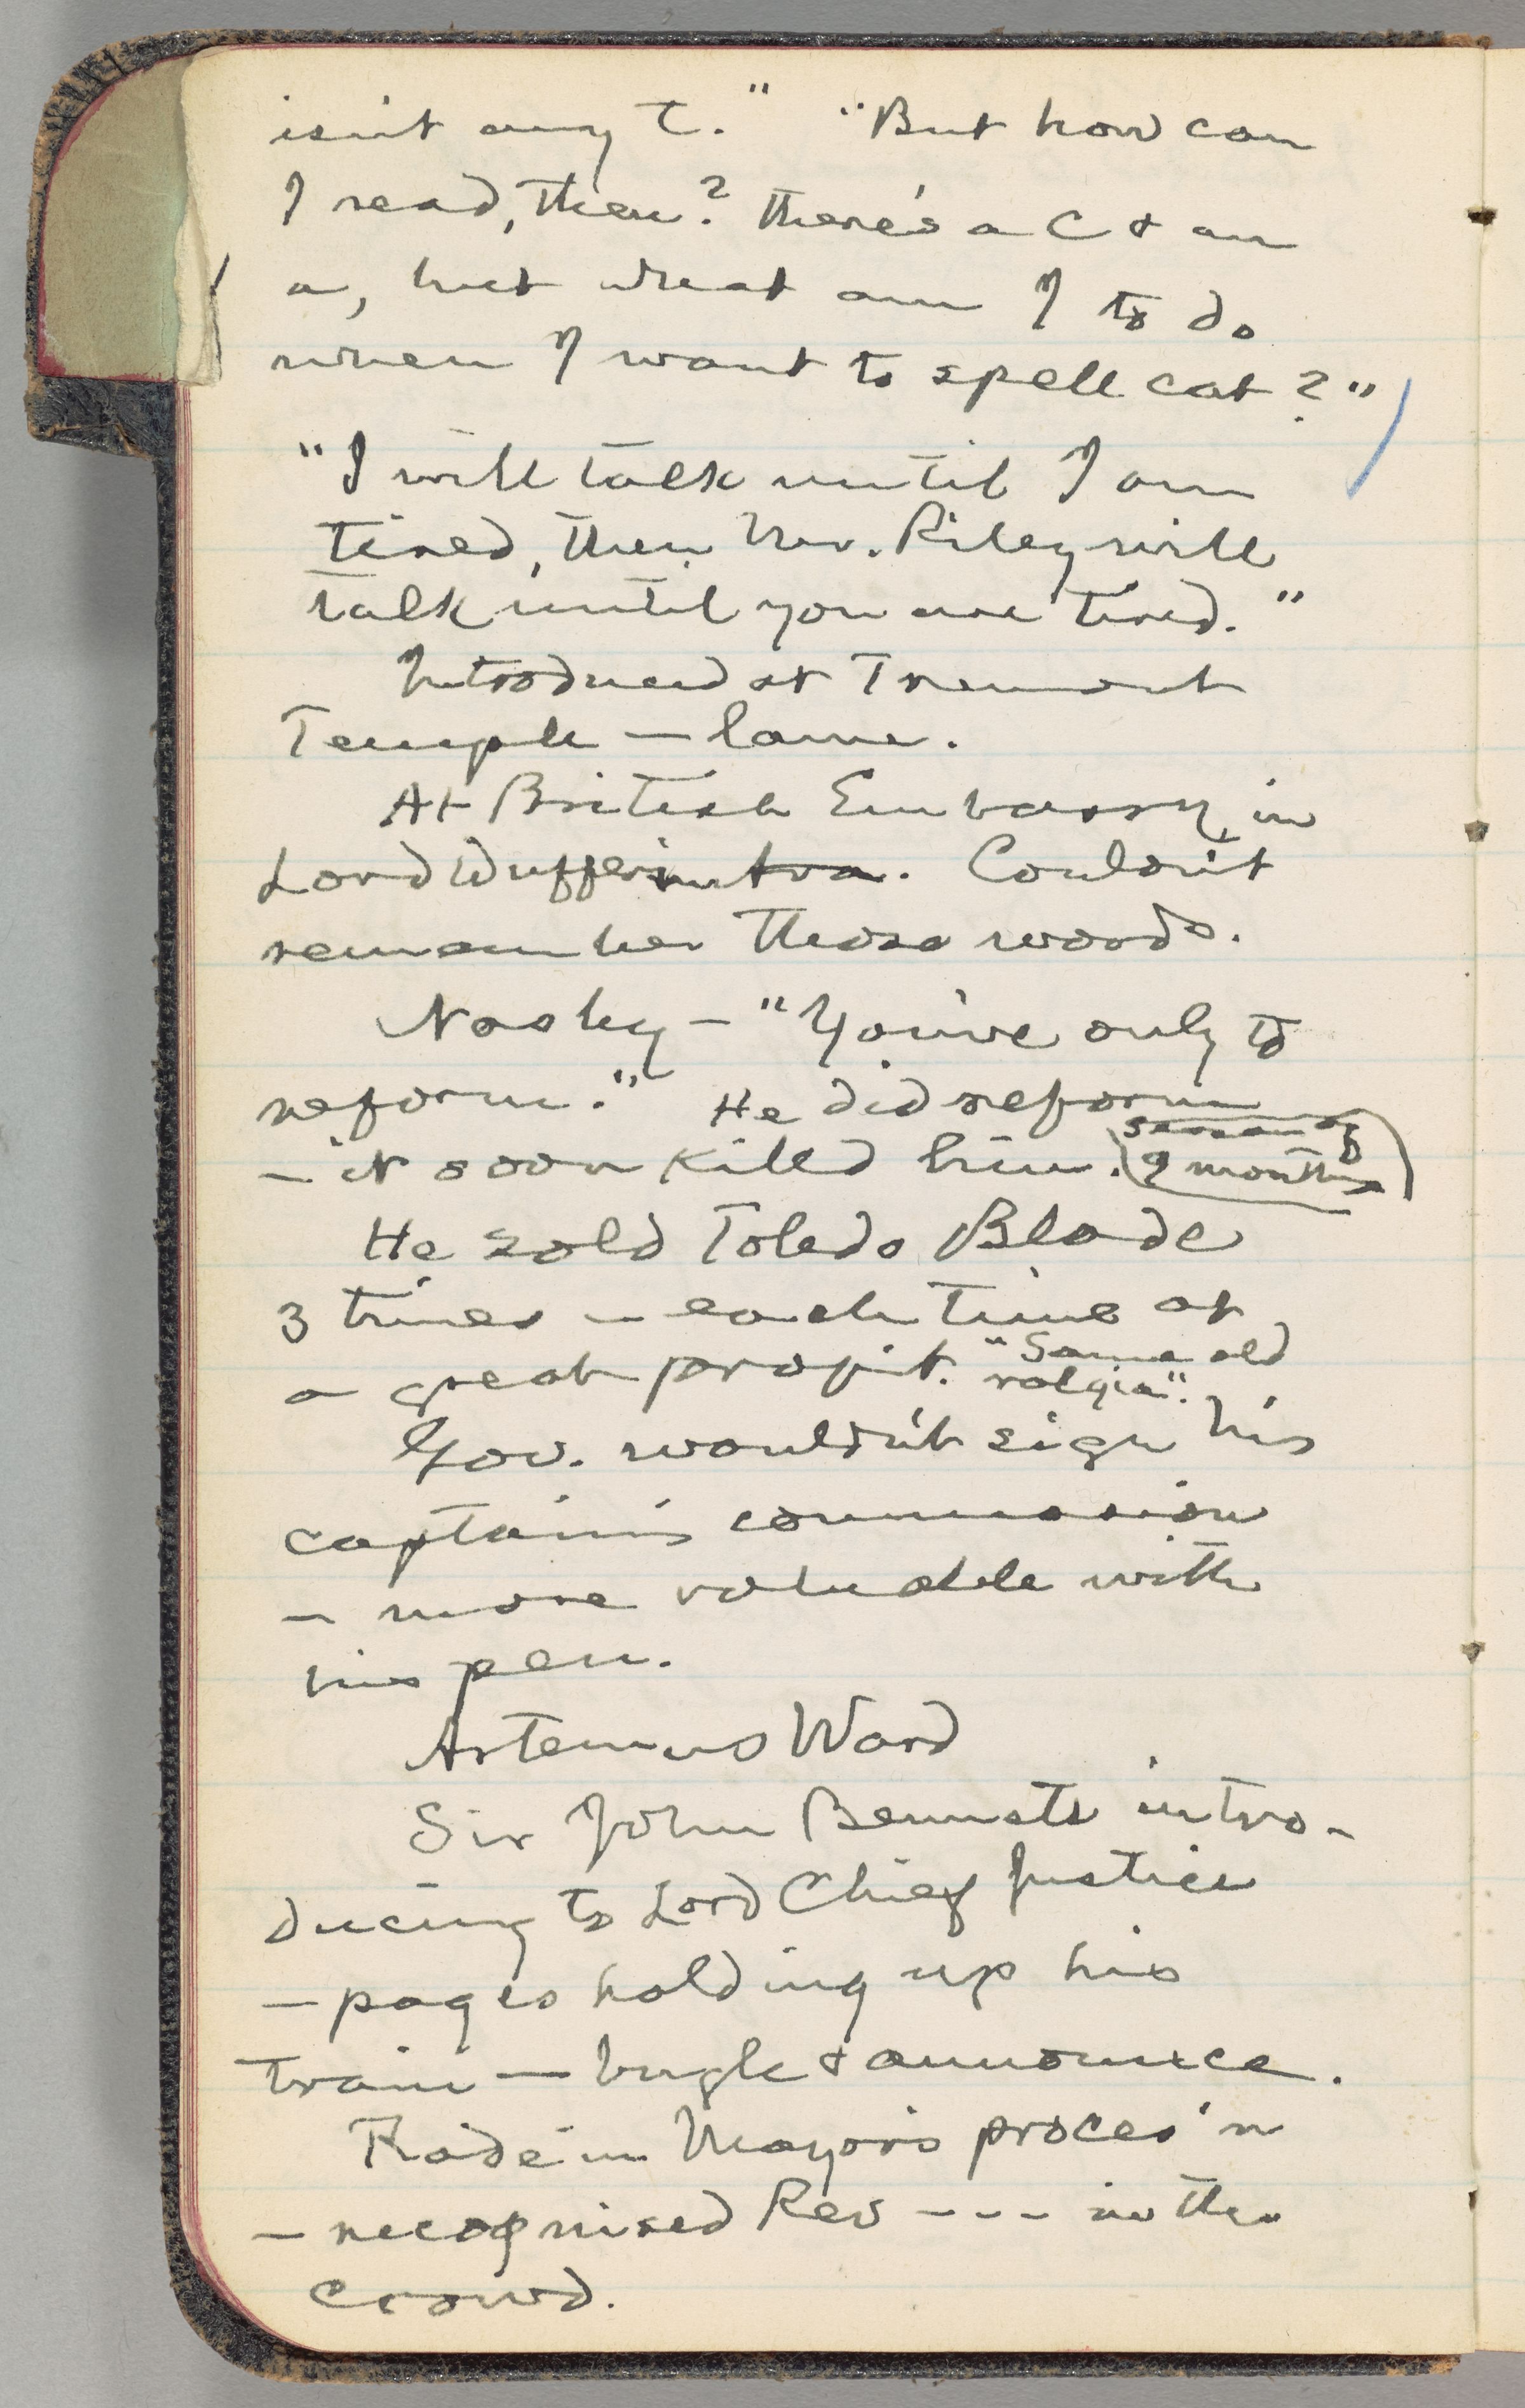 isn't any t." "But how can
I read, then? there's a C & an
a, but what am I to do
when I want to spell cat?"
"I will talk until I am
tired, then Mr. Riley will
talk until you are tired."
Introduced at Tremont
Temple — lame.
At British Embassy, in
Lord Dufferin intro. Couldn't
remember those words.
Nasby — "You've only to
reform." He did reform
— it soon killed him. (season of
9 months)
He sold Toledo Blade
3 times — each time at
a great profit. "Same old
ralgia".
Gov. wouldn't sign his
captain's commission
— more valuable with
his pen.
Artemus Ward
Sir John Bennett intro-
ducing to Lord Chief Justice
— pages holding up his
train — bugle & announce.
Rode in Mayor's proces'n
— recognised Rev - - - in the
crowd.